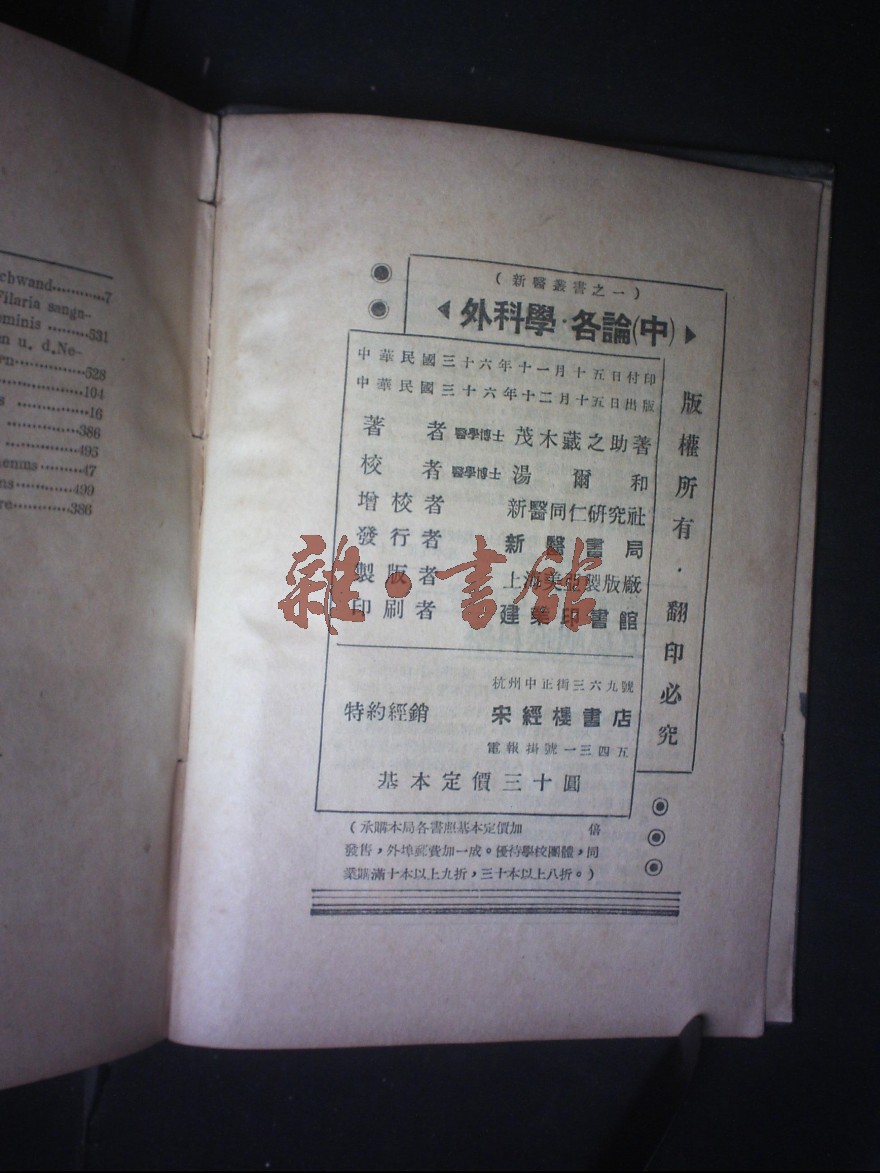 chwand............7
Filaria sangu-
ominis ........531
en u. d. Ne-
rn............528
................104
s ..............16
..............386
..............495
henmus.........47
ns............499
re............386
（新醫叢書之一）
外科學·各論（中）
中華民國三十六年十一月十五日付印
中華民國三十六年十二月十五日出版
著者 醫學博士 茂木藏之助著
校者 醫學博士 湯爾和
增校者 新醫同仁研究社
發行者 新醫書局
製版者 上海美亞製版廠
印刷者 建業印書館
杭州中正街三六九號
特約經銷 宋經樓書店
電報掛號一三四五
基本定價三十圓
版權所有·翻印必究
（承購本局各書照基本定價加 倍
發售，外埠郵費加一成。優待學校團體，同
業購滿十本以上九折，三十本以上八折。）
雜·書館